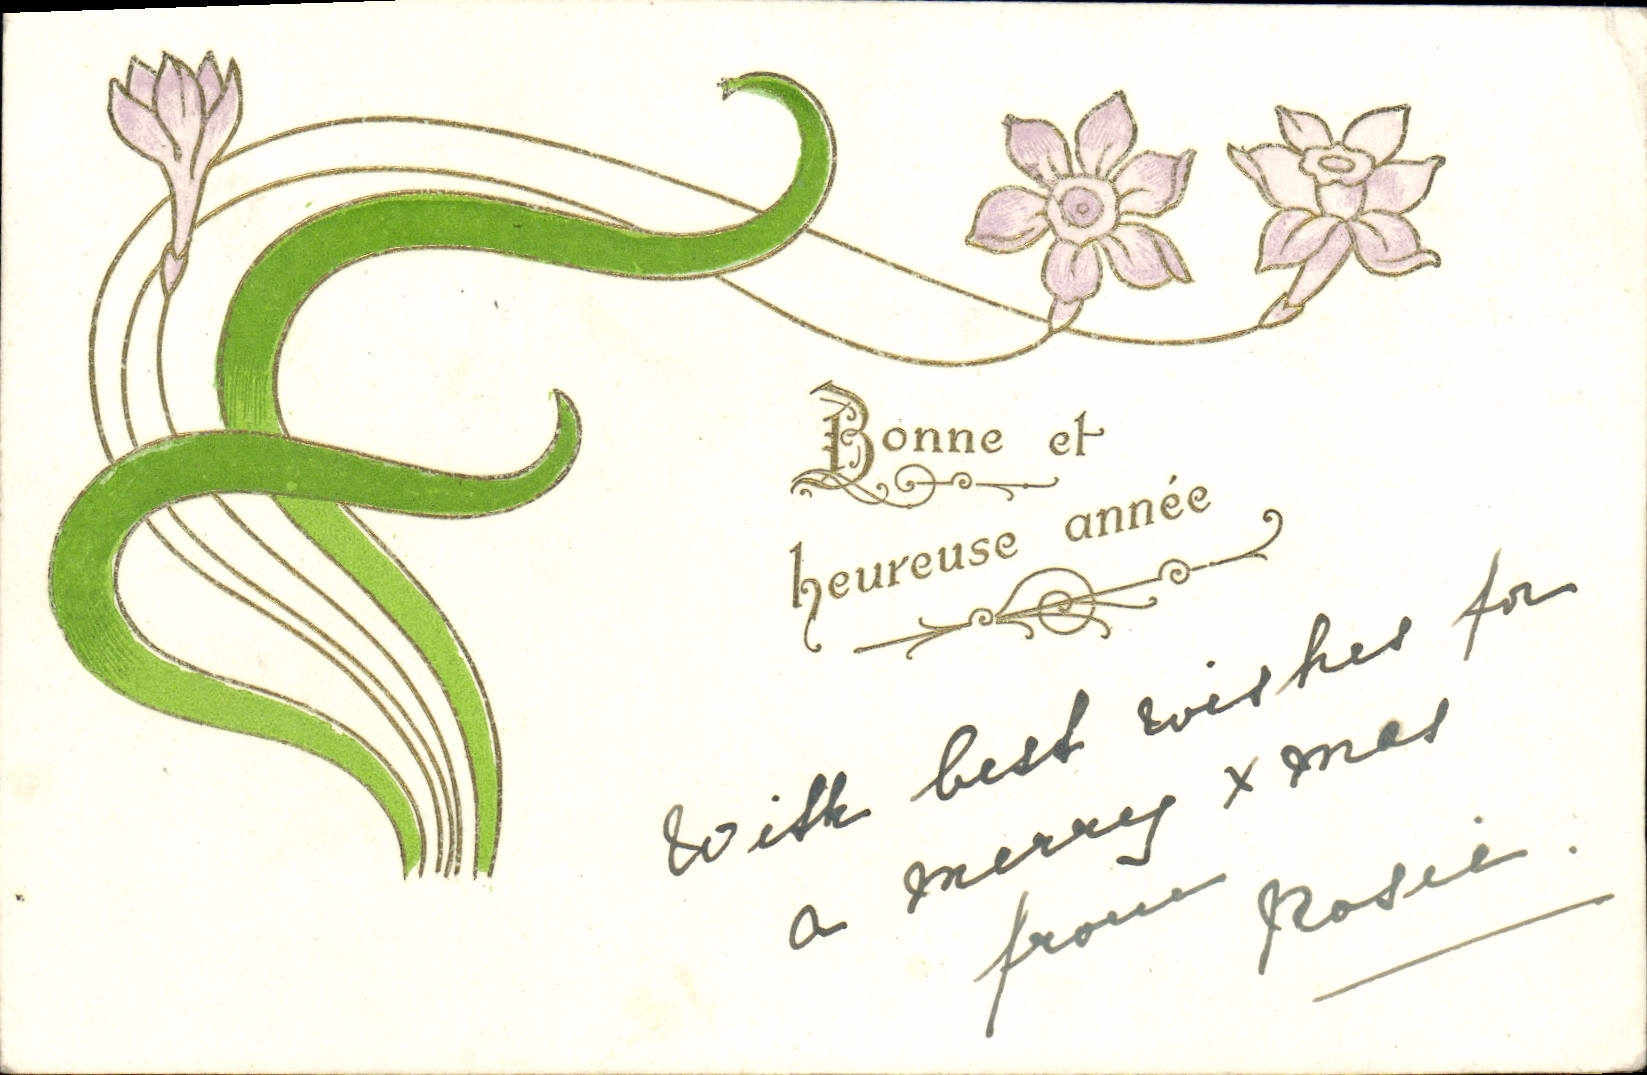 Bonne et
heureuse année
With best wishes for
a merry xmas
from Rosie.